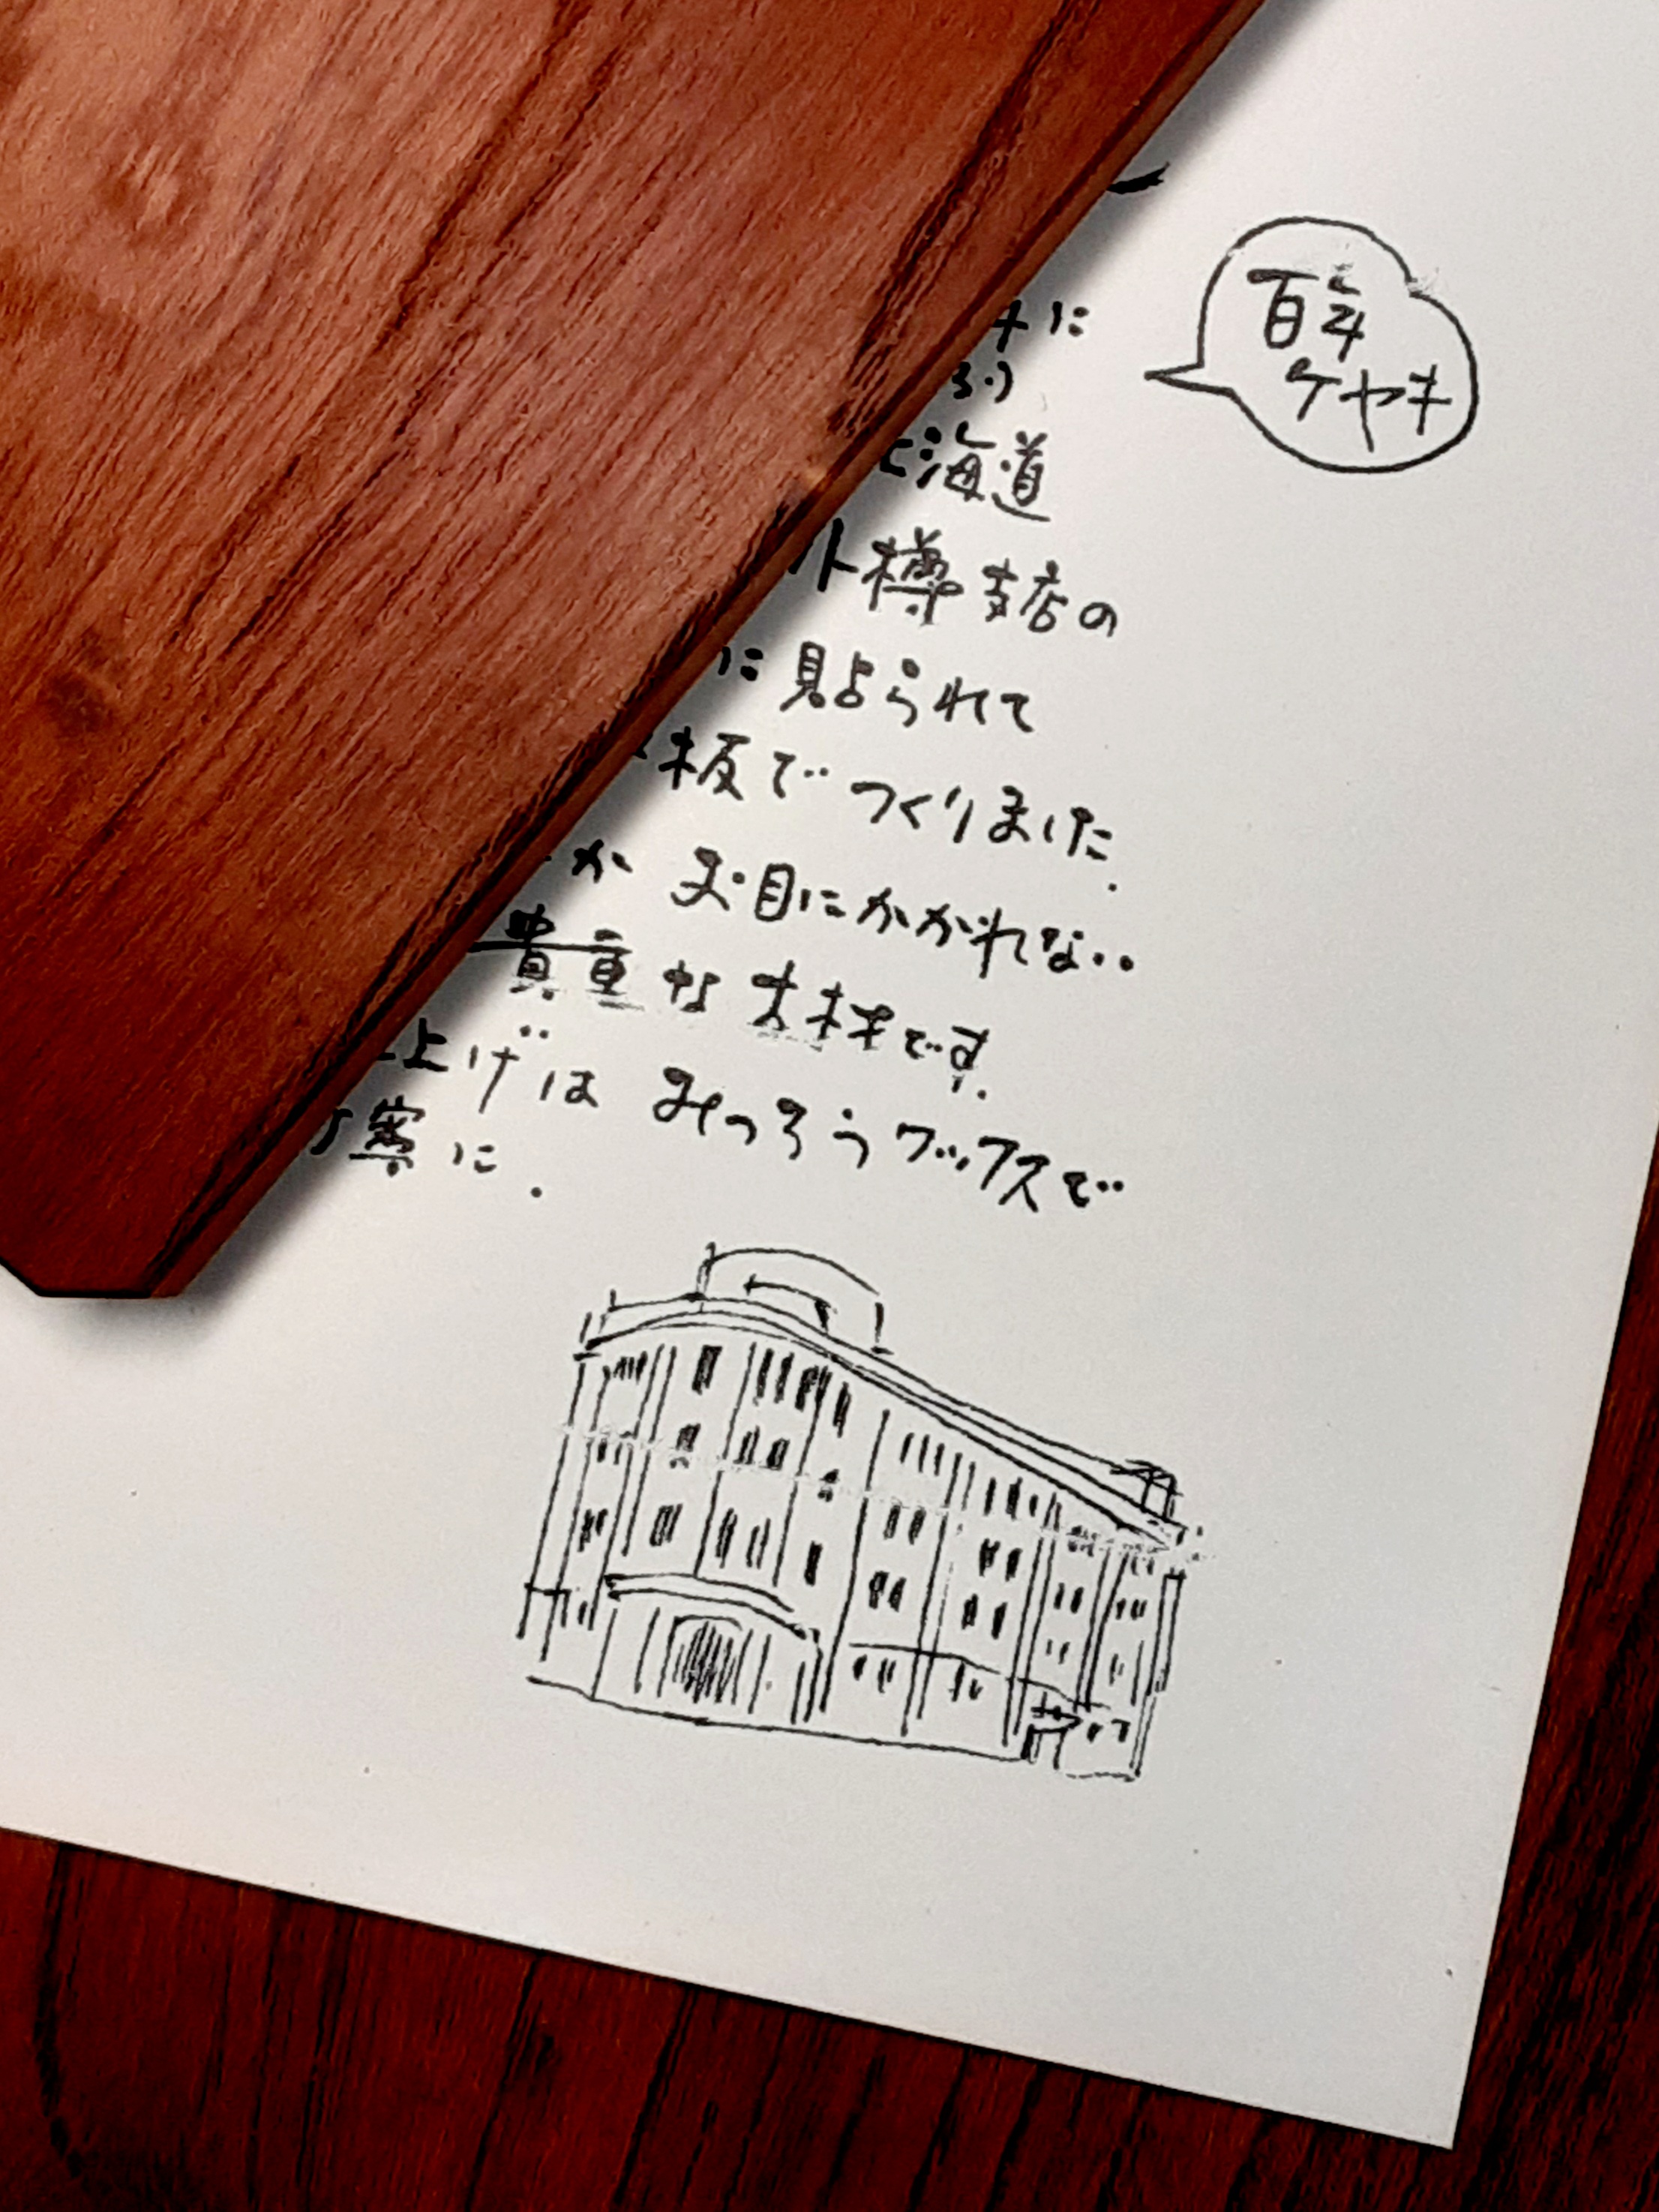 年に
海道
小樽支店の
に貼られて
板でつくりました.
か お目にかかれない
貴重な木材です.
上げは みつろうワックスで
寧に.
百年
ケヤキ